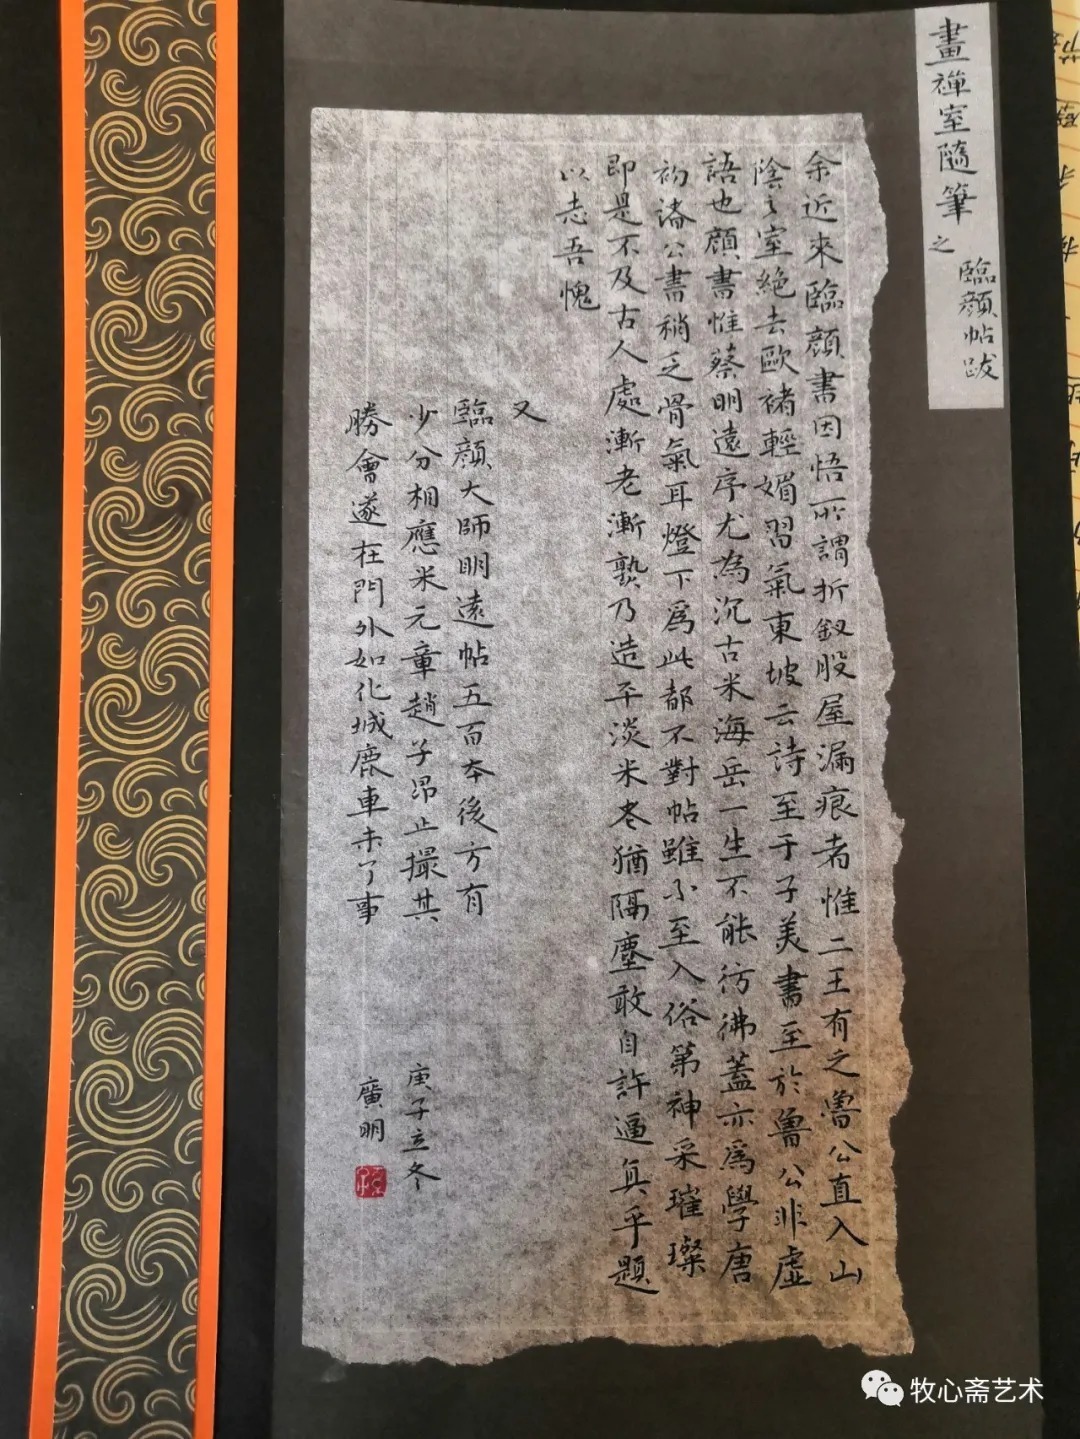 畫禪室隨筆之
臨顏帖跋
余近來臨顏書因悟所謂折釵股屋漏痕者惟二王有之魯公直入山
陰之室絕去歐褚輕媚習氣東坡云詩至于子美書至於魯公非虛
語也顏書惟蔡明遠序尤為沉古米海岳一生不能彷彿蓋亦為學唐
初諸公書稍乏骨氣耳燈下為此都不對帖雖不至入俗第神采璀璨
即是不及古人處漸老漸熟乃造平淡米老猶隔塵敢自許逼真乎題
以志吾愧
又
臨顏大師明遠帖五百本後方有
少分相應米元章趙子昂止撮其
勝會遂在門外如化城鹿車未了事
庚子立冬
廣明
牧心斋艺术